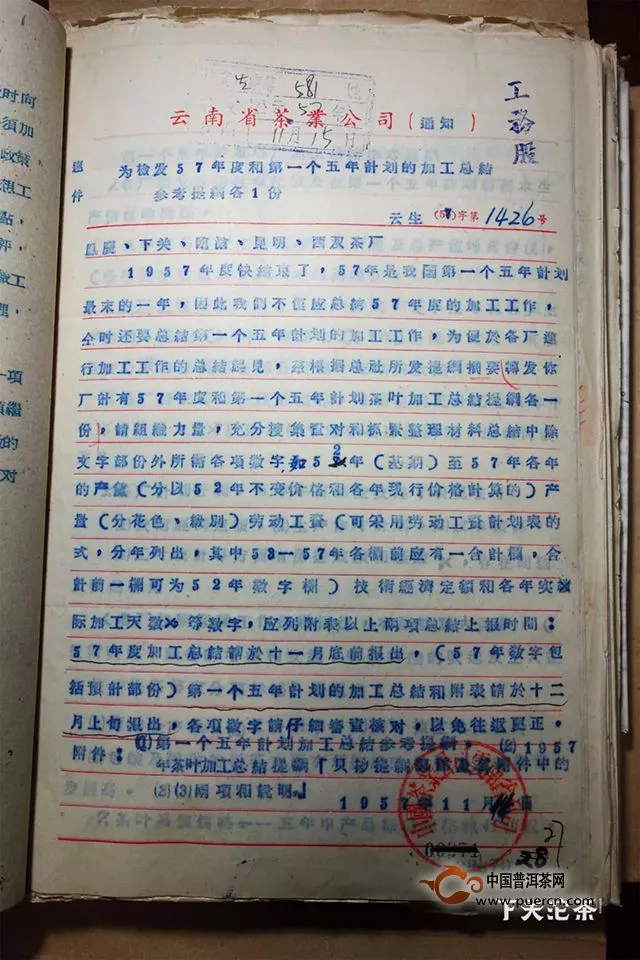 581
57
11月15
云南省茶業公司(通知)
工務股
逕件 为检发57年度和第一个五年計划的加工总結
参考提綱各1份
云生(57)字第1426号
鳳慶、下关、临沧、昆明、西双茶厂
1957年度快結束了,57年是我国第一个五年計划
最末的一年,因此我們不僅应总結57年度的加工工作,
仝时还要总結第一个五年計划的加工工作,为便於各厂進
行加工工作的总結起見,茲根据总社所发提綱摘要轉发你
厂計有57年度和第一个五年計划茶叶加工总結提綱各一
份,請組織力量,充分搜集查对和抓紧整理材料总結中除
文字部份外所需各項数字如52年(基期)至57年各年
的产值(分以52年不变价格和各年現行价格計算的)产
量(分花色、級別)劳动工資(可采用劳动工資計划表的
式,分年列出,其中53—57年各欄前应有一合計欄,合
計前一欄可为52年数字欄)技術經济定額和各年实
际加工天数等数字,应列附表以上兩項总結上报时間:
57年度加工总結請於十一月底前报出,(57年数字包
括預計部份)第一个五年計划的加工总結和附表請於十二
月上旬报出,各項数字請仔細審查核对,以免往返更正。
附件:(1)第一个五年計划加工总結参考提綱,(2)1957
年茶叶加工总結提綱
(2)(3)兩項和說明。
1957年11月
27
28
中国普洱茶网
www.puercn.com
下关沱茶
时向
須加
政策
想工
点,
評,
工
理,
一項
的
对